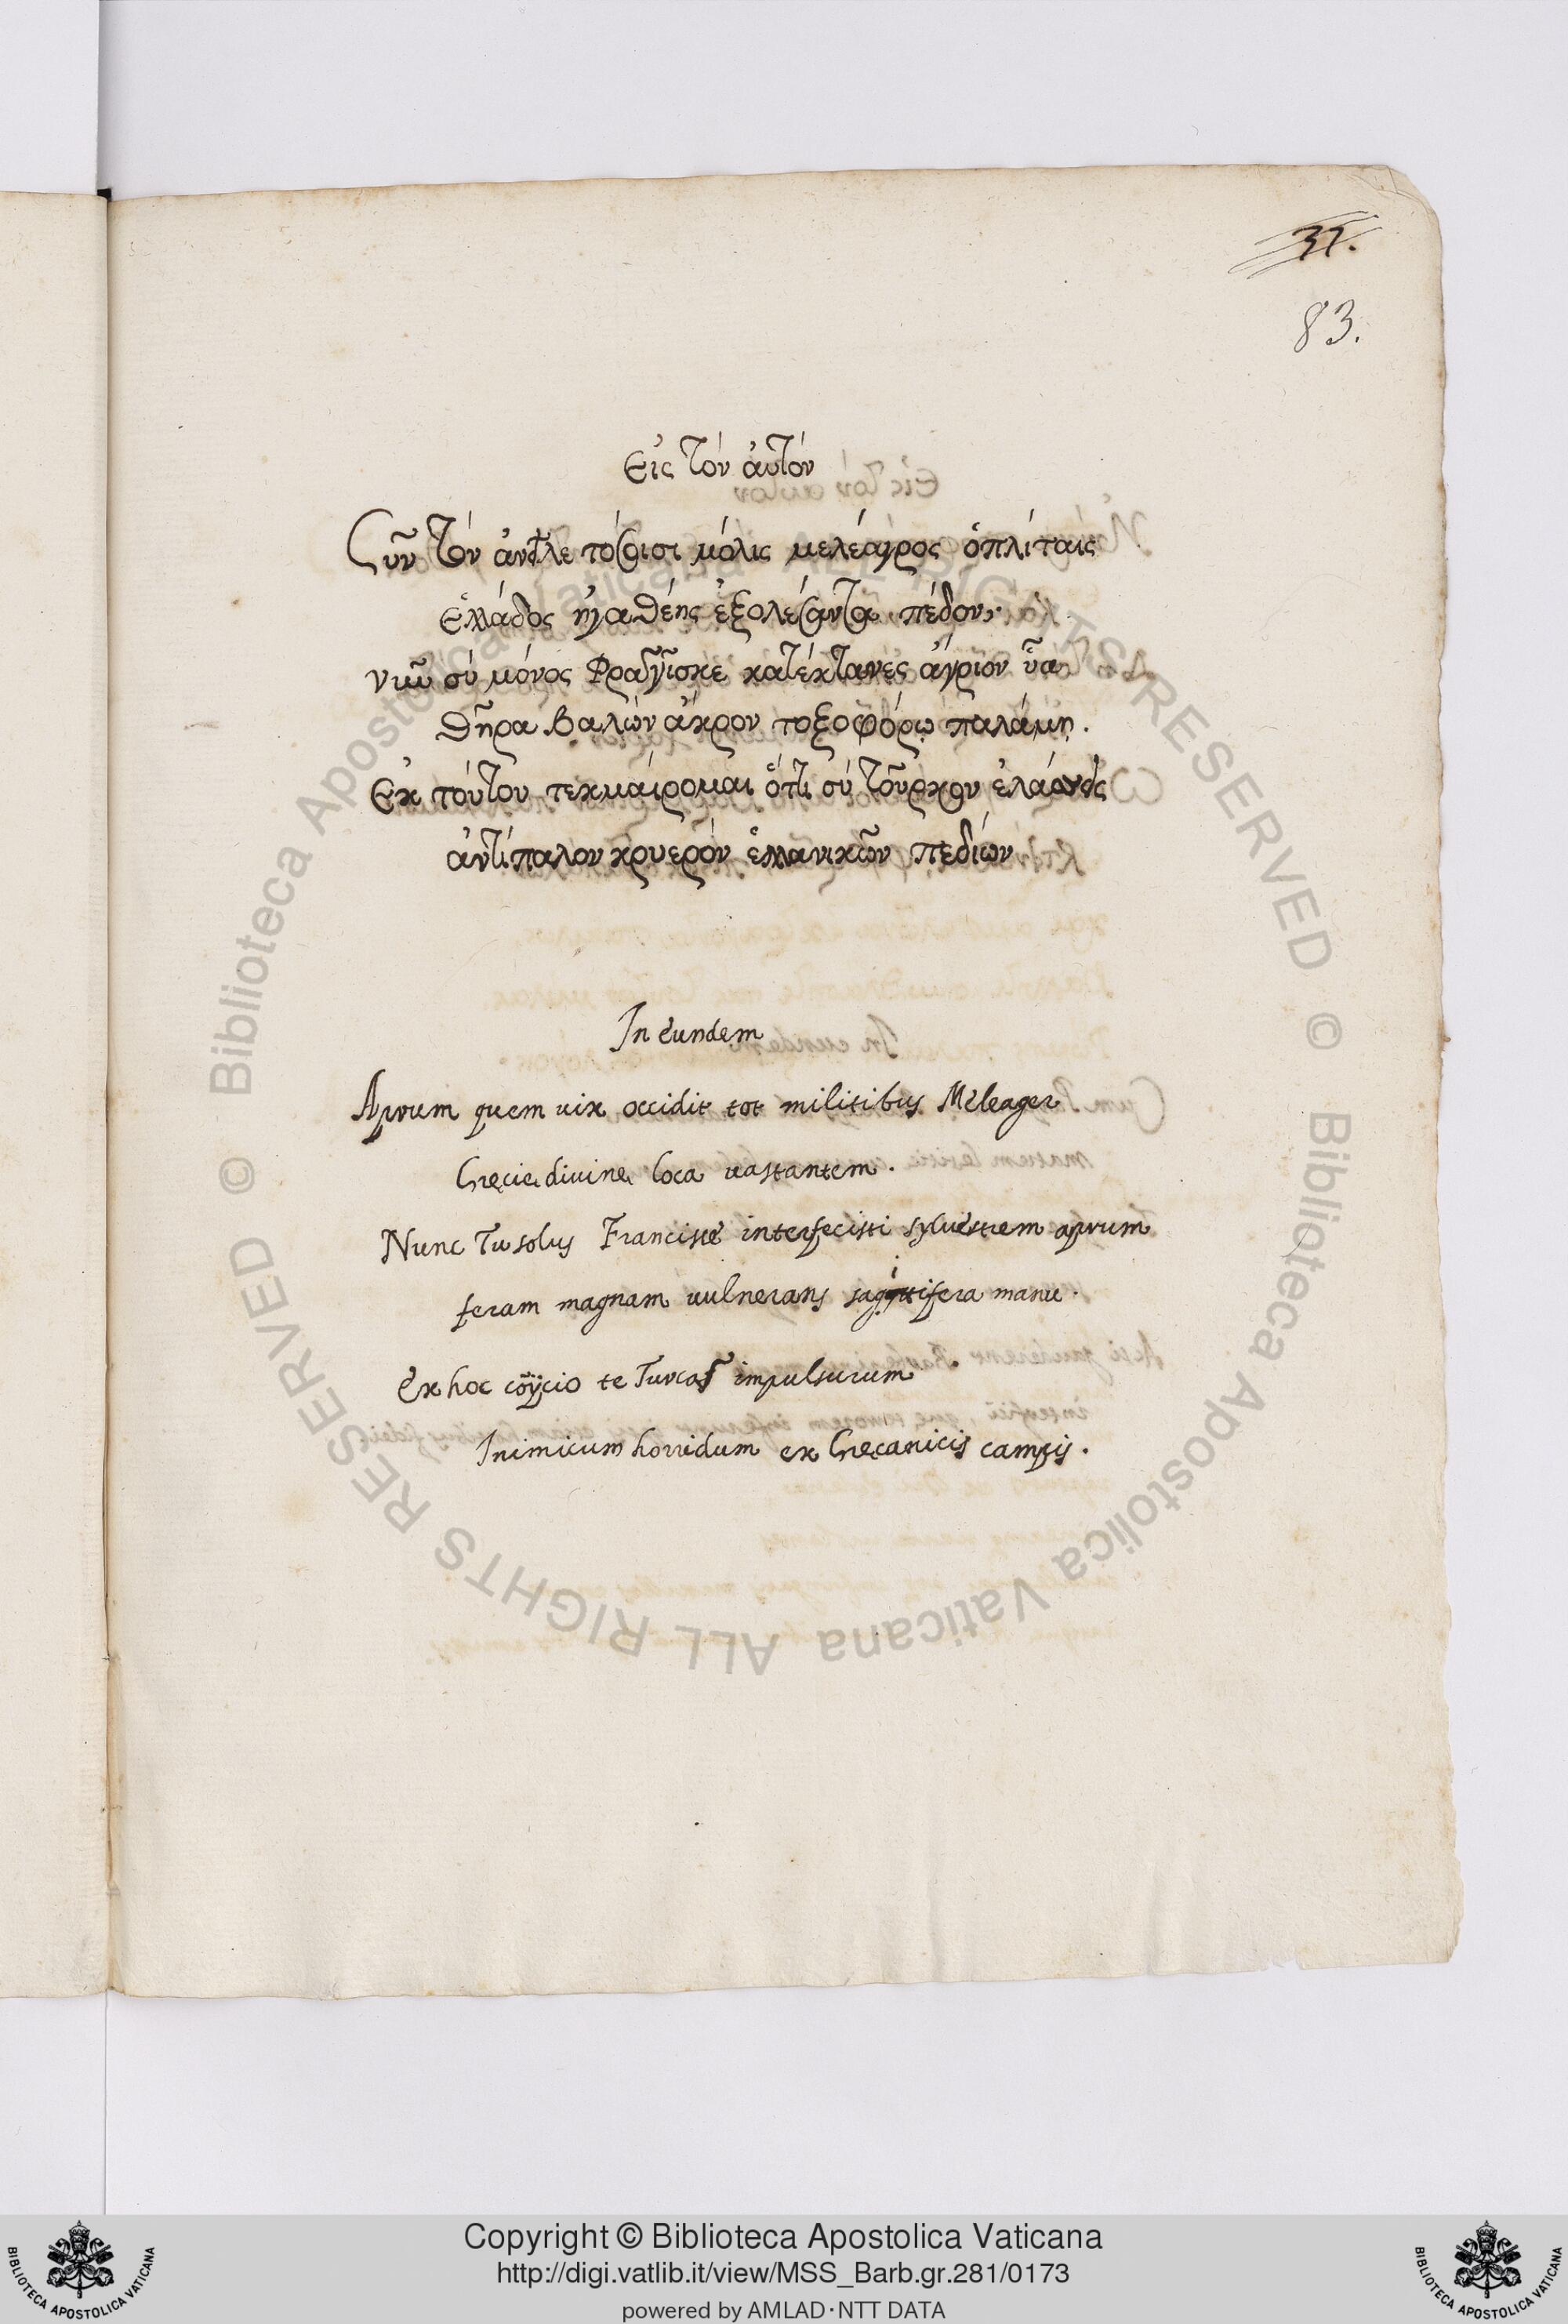 37.
83.
Εἰς τόν ἀυτόν
Σῦν τόν ἀνεῖλε τόσοισι μόλις μελέαγρος ὁπλίταις
Ἑλλάδος ἠγαθέης ἐξολέσαντα πέδον.
νῦν σύ μόνος Φραγγῖσκε κατέκτανες ἄγριον ὗα
θῆρα βαλών ἄκρον τοξοφόρῳ παλάμῃ.
Ἐκ τούτου τεκμαίρομαι ὅττι σύ τοῦρκον
ἀντίπαλον κρυερόν ἑλλανικῶν πεδιών
In eundem
Aprum quem uix occidit tot militibus Meleager
Gręcię diuinę loca uastantem.
Nunc Tu solus Francisce interfecisti syluestrem aprum
feram magnam uulnerans sagittifera manu.
Ex hoc te Turcas impulsurum
Inimicum horridum ex Gręcanicis campis.
© Biblioteca Apostolica Vaticana ALL RIGHTS RESERVED
© Biblioteca Apostolica Vaticana ALL RIGHTS RESERVED
Copyright © Biblioteca Apostolica Vaticana
http://digi.vatlib.it/view/MSS_Barb.gr.281/0173
powered by AMLAD·NTT DATA
BIBLIOTECA APOSTOLICA VATICANA
BIBLIOTECA APOSTOLICA VATICANA